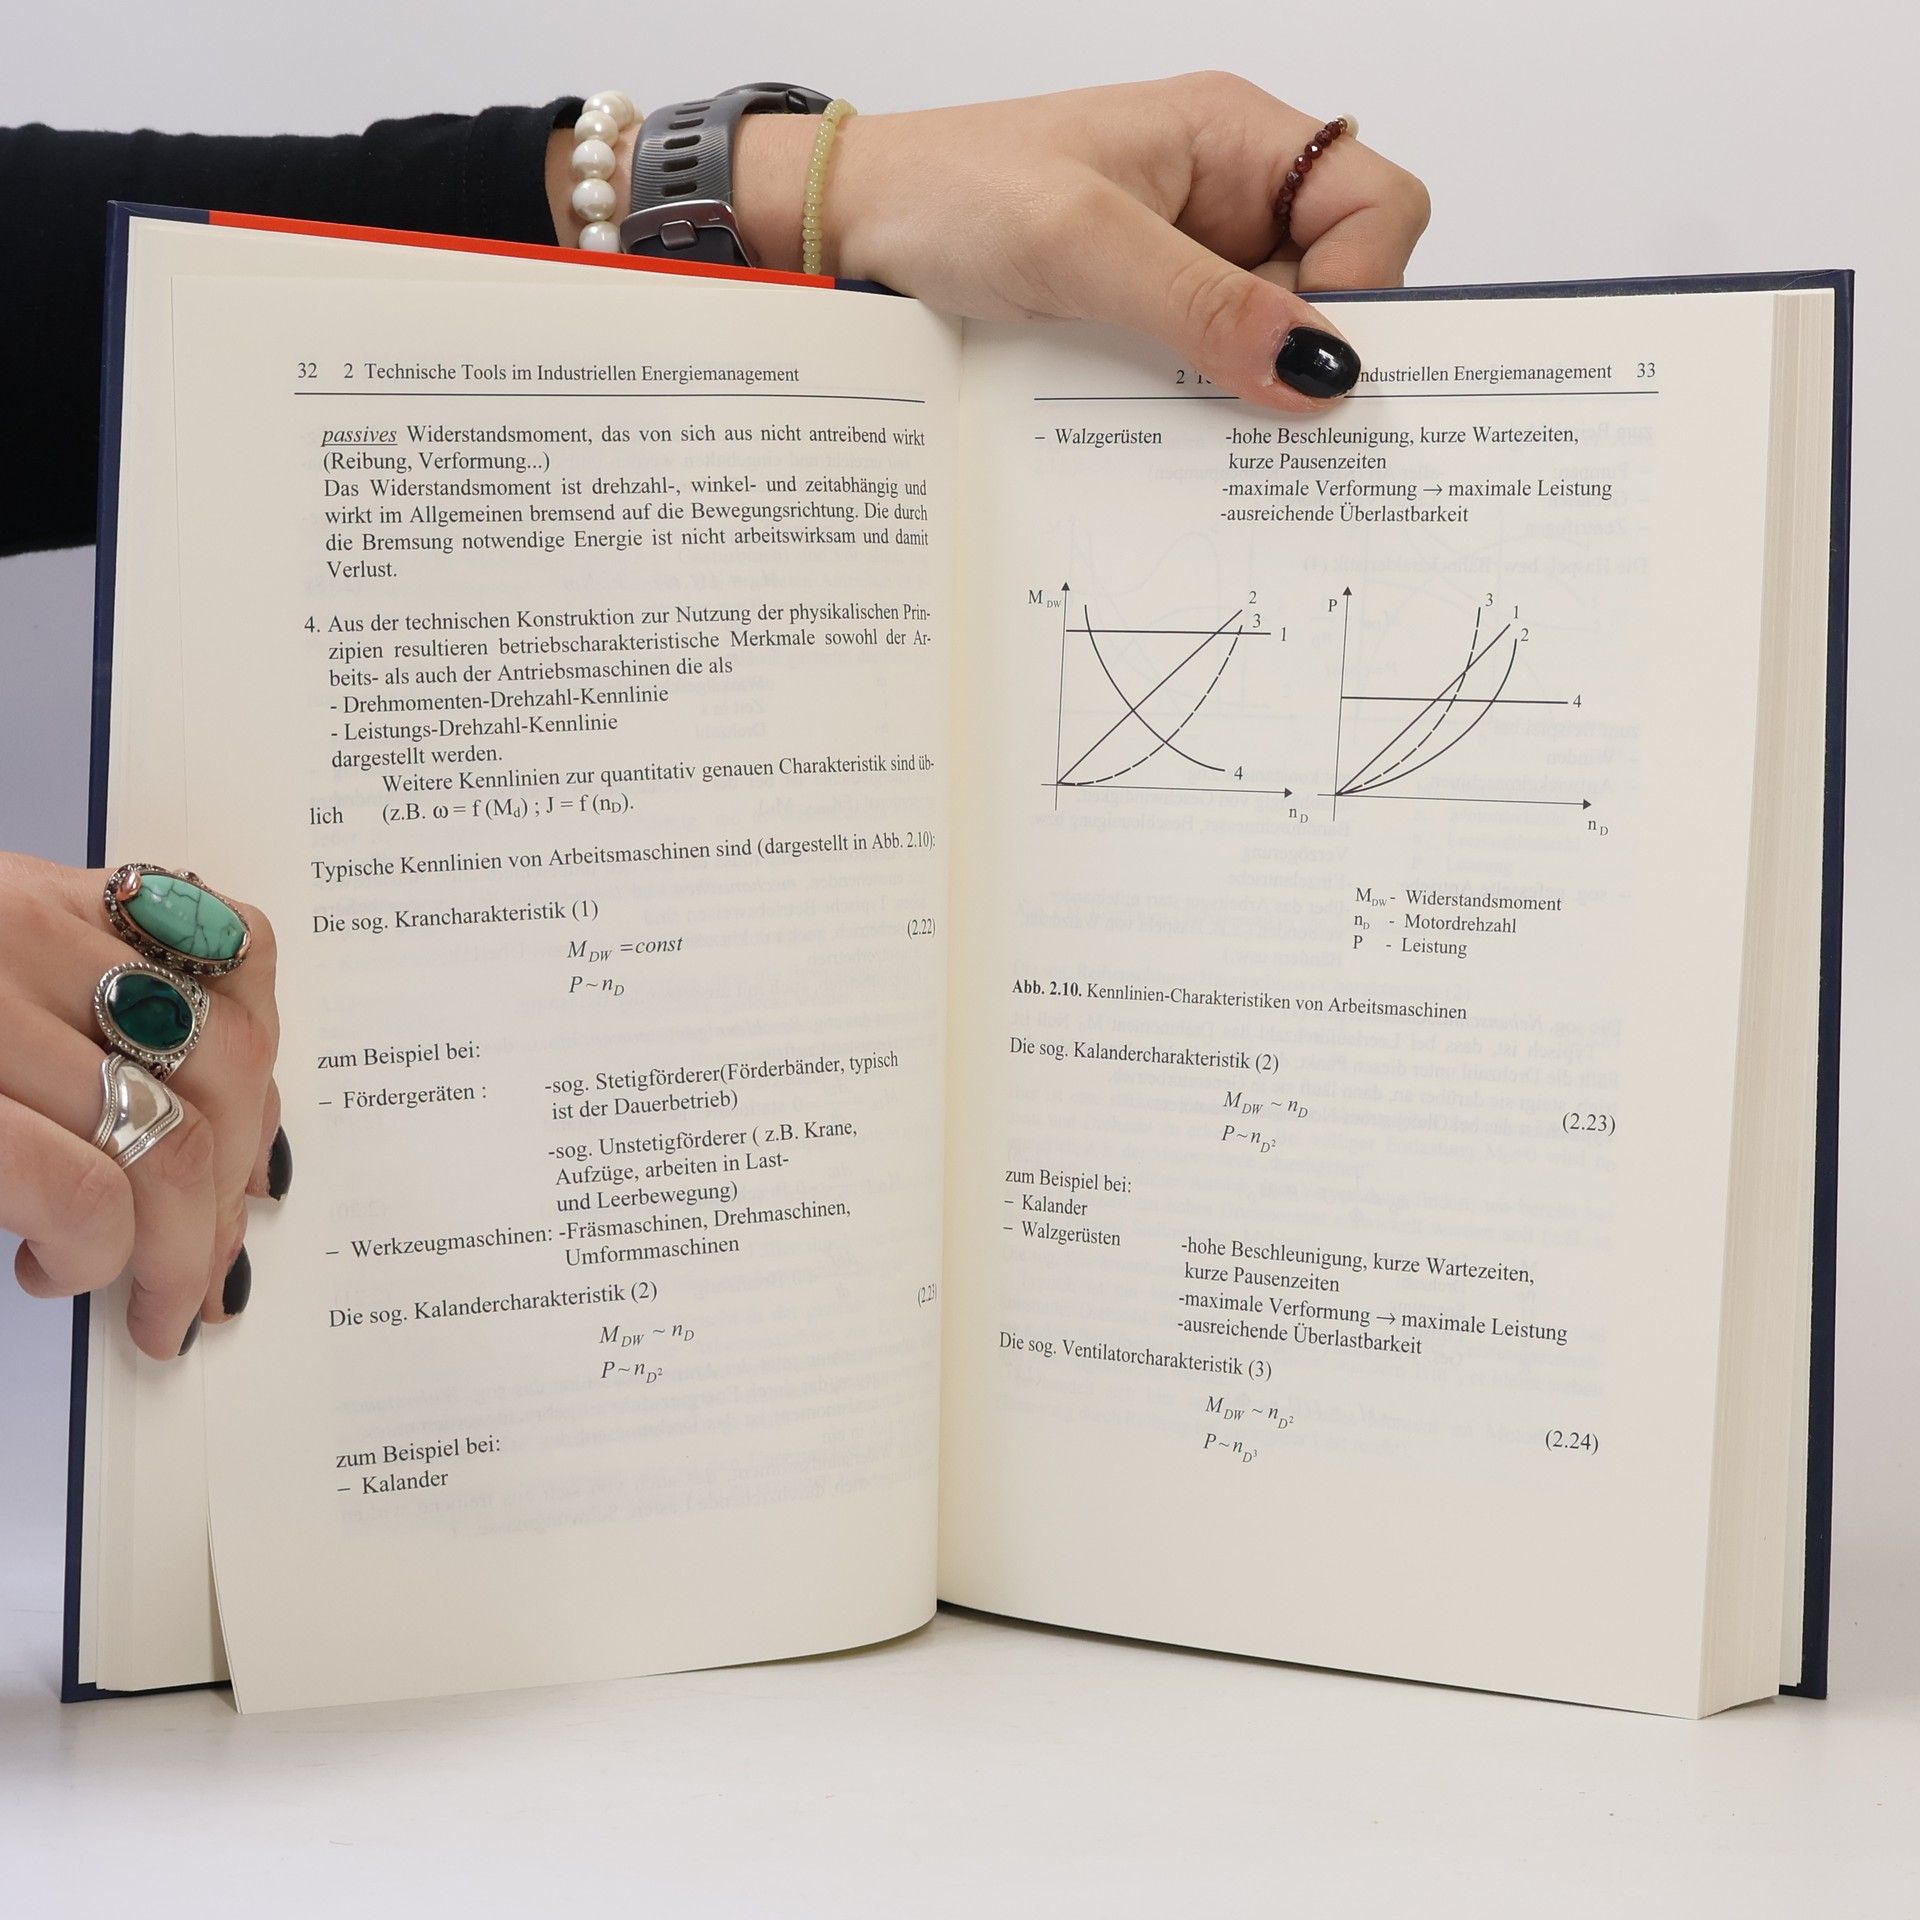 32 2 Technische Tools im Industriellen Energiemanagement
passives Widerstandsmoment, das von sich aus nicht antreibend wirkt
(Reibung, Verformung...)
Das Widerstandsmoment ist drehzahl-, winkel- und zeitabhängig und
wirkt im Allgemeinen bremsend auf die Bewegungsrichtung. Die durch
die Bremsung notwendige Energie ist nicht arbeitswirksam und damit
Verlust.
4. Aus der technischen Konstruktion zur Nutzung der physikalischen Prin-
zipien resultieren betriebscharakteristische Merkmale sowohl der Ar-
beits- als auch der Antriebsmaschinen die als
- Drehmomenten-Drehzahl-Kennlinie
- Leistungs-Drehzahl-Kennlinie
dargestellt werden.
Weitere Kennlinien zur quantitativ genauen Charakteristik sind üb-
lich (z.B. ω = f (Md) ; J = f (nD).
Typische Kennlinien von Arbeitsmaschinen sind (dargestellt in Abb. 2.10):
Die sog. Krancharakteristik (1)
MDW =const (2.22)
P~nD
zum Beispiel bei:
– Fördergeräten : -sog. Stetigförderer(Förderbänder, typisch
ist der Dauerbetrieb)
-sog. Unstetigförderer ( z.B. Krane,
Aufzüge, arbeiten in Last-
und Leerbewegung)
– Werkzeugmaschinen: -Fräsmaschinen, Drehmaschinen,
Umformmaschinen
Die sog. Kalandercharakteristik (2) (2.23
MDW ~ nD
P~nD²
zum Beispiel bei:
– Kalander
2 ndustriellen Energiemanagement 33
– Walzgerüsten -hohe Beschleunigung, kurze Wartezeiten,
kurze Pausenzeiten
-maximale Verformung → maximale Leistung
-ausreichende Überlastbarkeit
MDW 2 3 1 4 nD
P 3 1 2 4 nD
MDW - Widerstandsmoment
nD - Motordrehzahl
P - Leistung
Abb. 2.10. Kennlinien-Charakteristiken von Arbeitsmaschinen
Die sog. Kalandercharakteristik (2)
MDW ~ nD (2.23)
P~nD²
zum Beispiel bei:
– Kalander
– Walzgerüsten -hohe Beschleunigung, kurze Wartezeiten,
kurze Pausenzeiten
-maximale Verformung → maximale Leistung
-ausreichende Überlastbarkeit
Die sog. Ventilatorcharakteristik (3)
MDW ~ nD² (2.24)
P~nD³